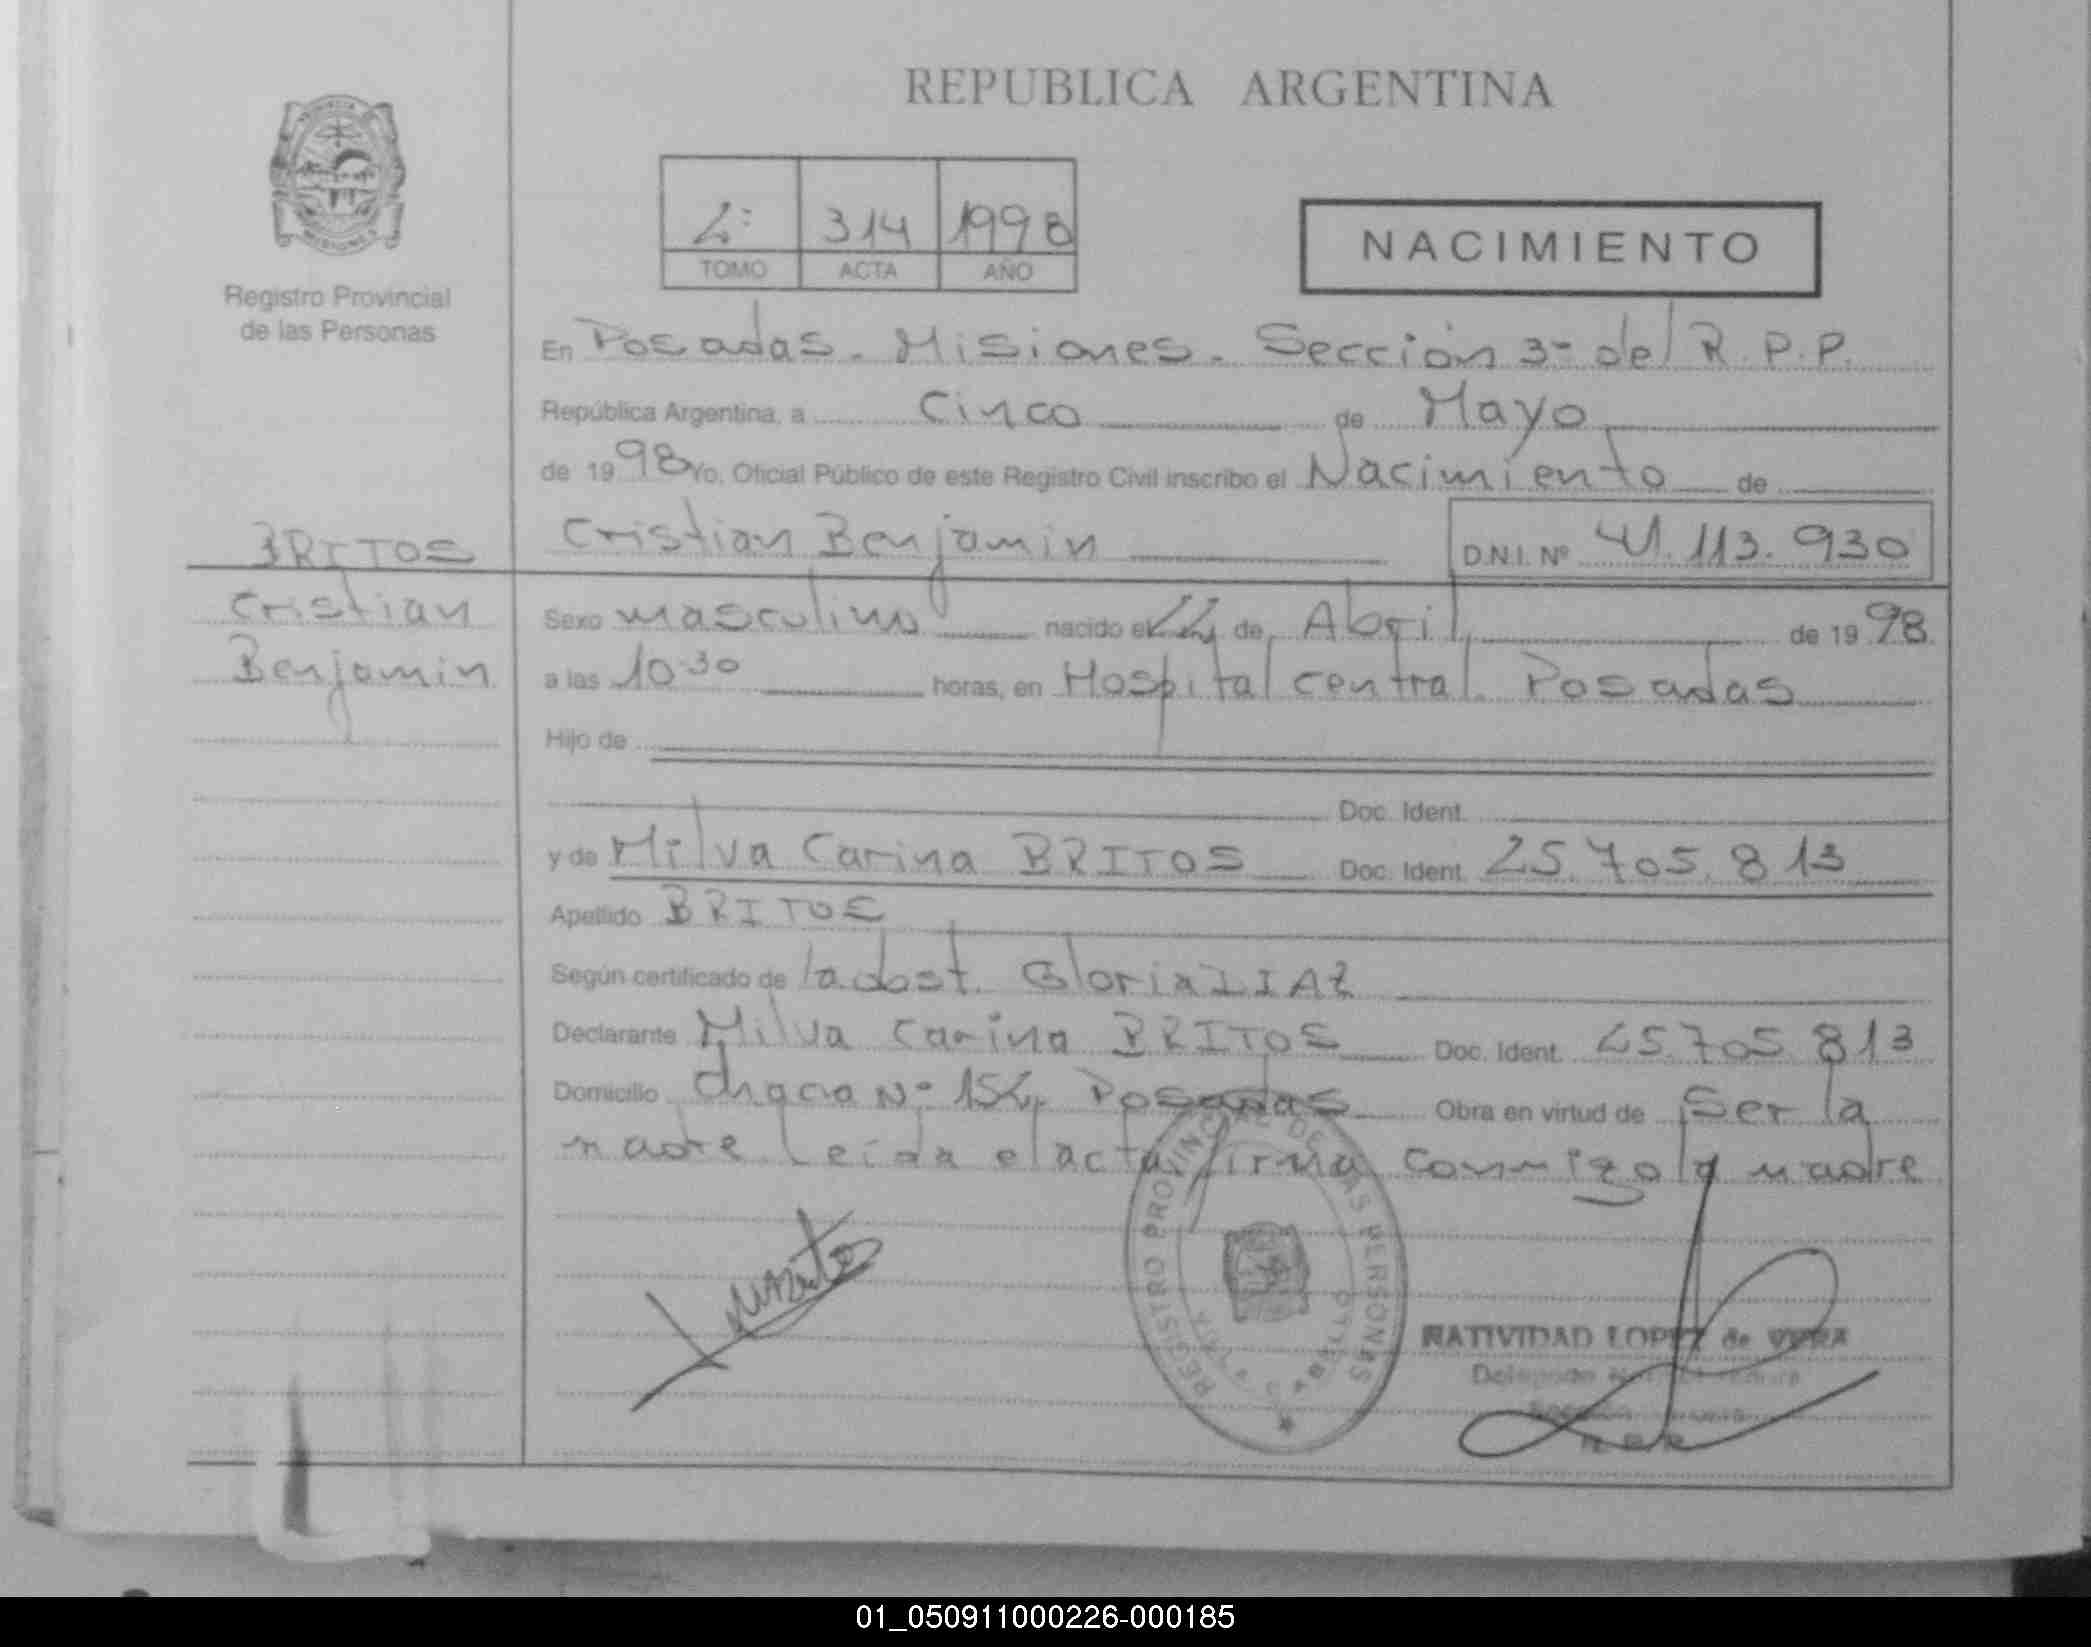 REPUBLICA ARGENTINA
PROVINCIA MISIONES
Registro Provincial
de las Personas
2º 314 1998
TOMO ACTA AÑO
NACIMIENTO
En Posadas - Misiones - Sección 3º del R.P.P.
República Argentina, a Cinco de Mayo
de 1998 Yo, Oficial Público de este Registro Civil inscribo el Nacimiento de
BRITOS Cristian Benjamin D.N.I. Nº 41.113.930
Cristian
Benjamin
Sexo masculino nacido el 22 de Abril de 1998
a las 10:30 horas, en Hospital central Posadas
Hijo de
Doc. Ident.
y de Milva Carina BRITOS Doc. Ident. 25.705.813
Apellido BRITOS
Según certificado de la obst. Gloria DIAZ
Declarante Milva Carina BRITOS Doc. Ident. 25.705.813
Domicilio Chacra Nº 152, Posadas Obra en virtud de Ser la
madre Leída el acta firma conmigo la madre
REGISTRO PROVINCIAL DE LAS PERSONAS
NATIVIDAD LOPEZ de VERA
01_050911000226-000185